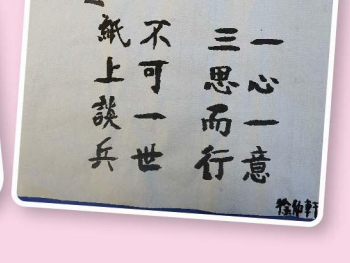 一心一意
三思而行
不可一世
紙上談兵